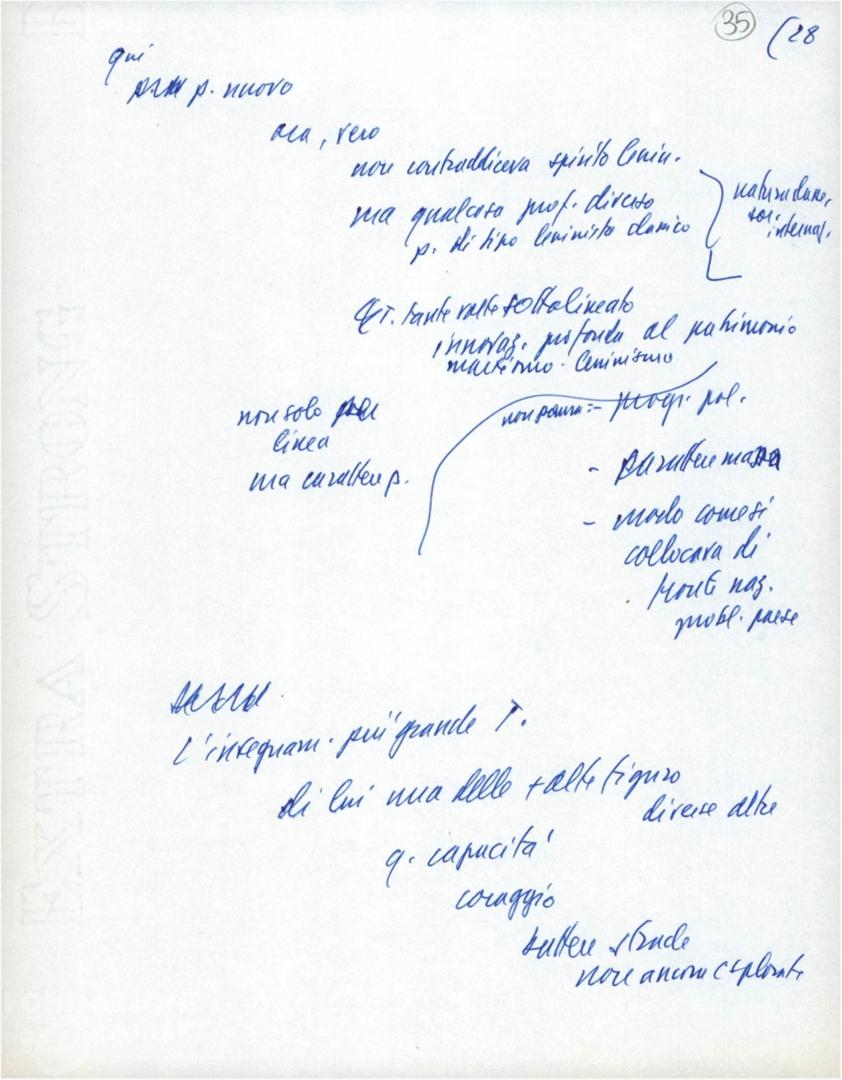 35 (28
qui
p. nuovo
ora, vero
non contraddiceva spirito lenin.
ma qualcosa prof. diverso
p. di tipo leninista classico
natura
internaz.
T. tante volte sottolineato
innovaz. profonda al patrimonio
marxismo-leninismo
non solo
linea
ma carattere p.
- progr. pol.
- carattere massa
- modo come si
collocava di
fronte naz.
probl. paese
L'insegnam. più grande T.
di lui una delle + alte figure
diverse altre
q. capacità
coraggio
battere strade
non ancora esplorate
EXTRA STRONG